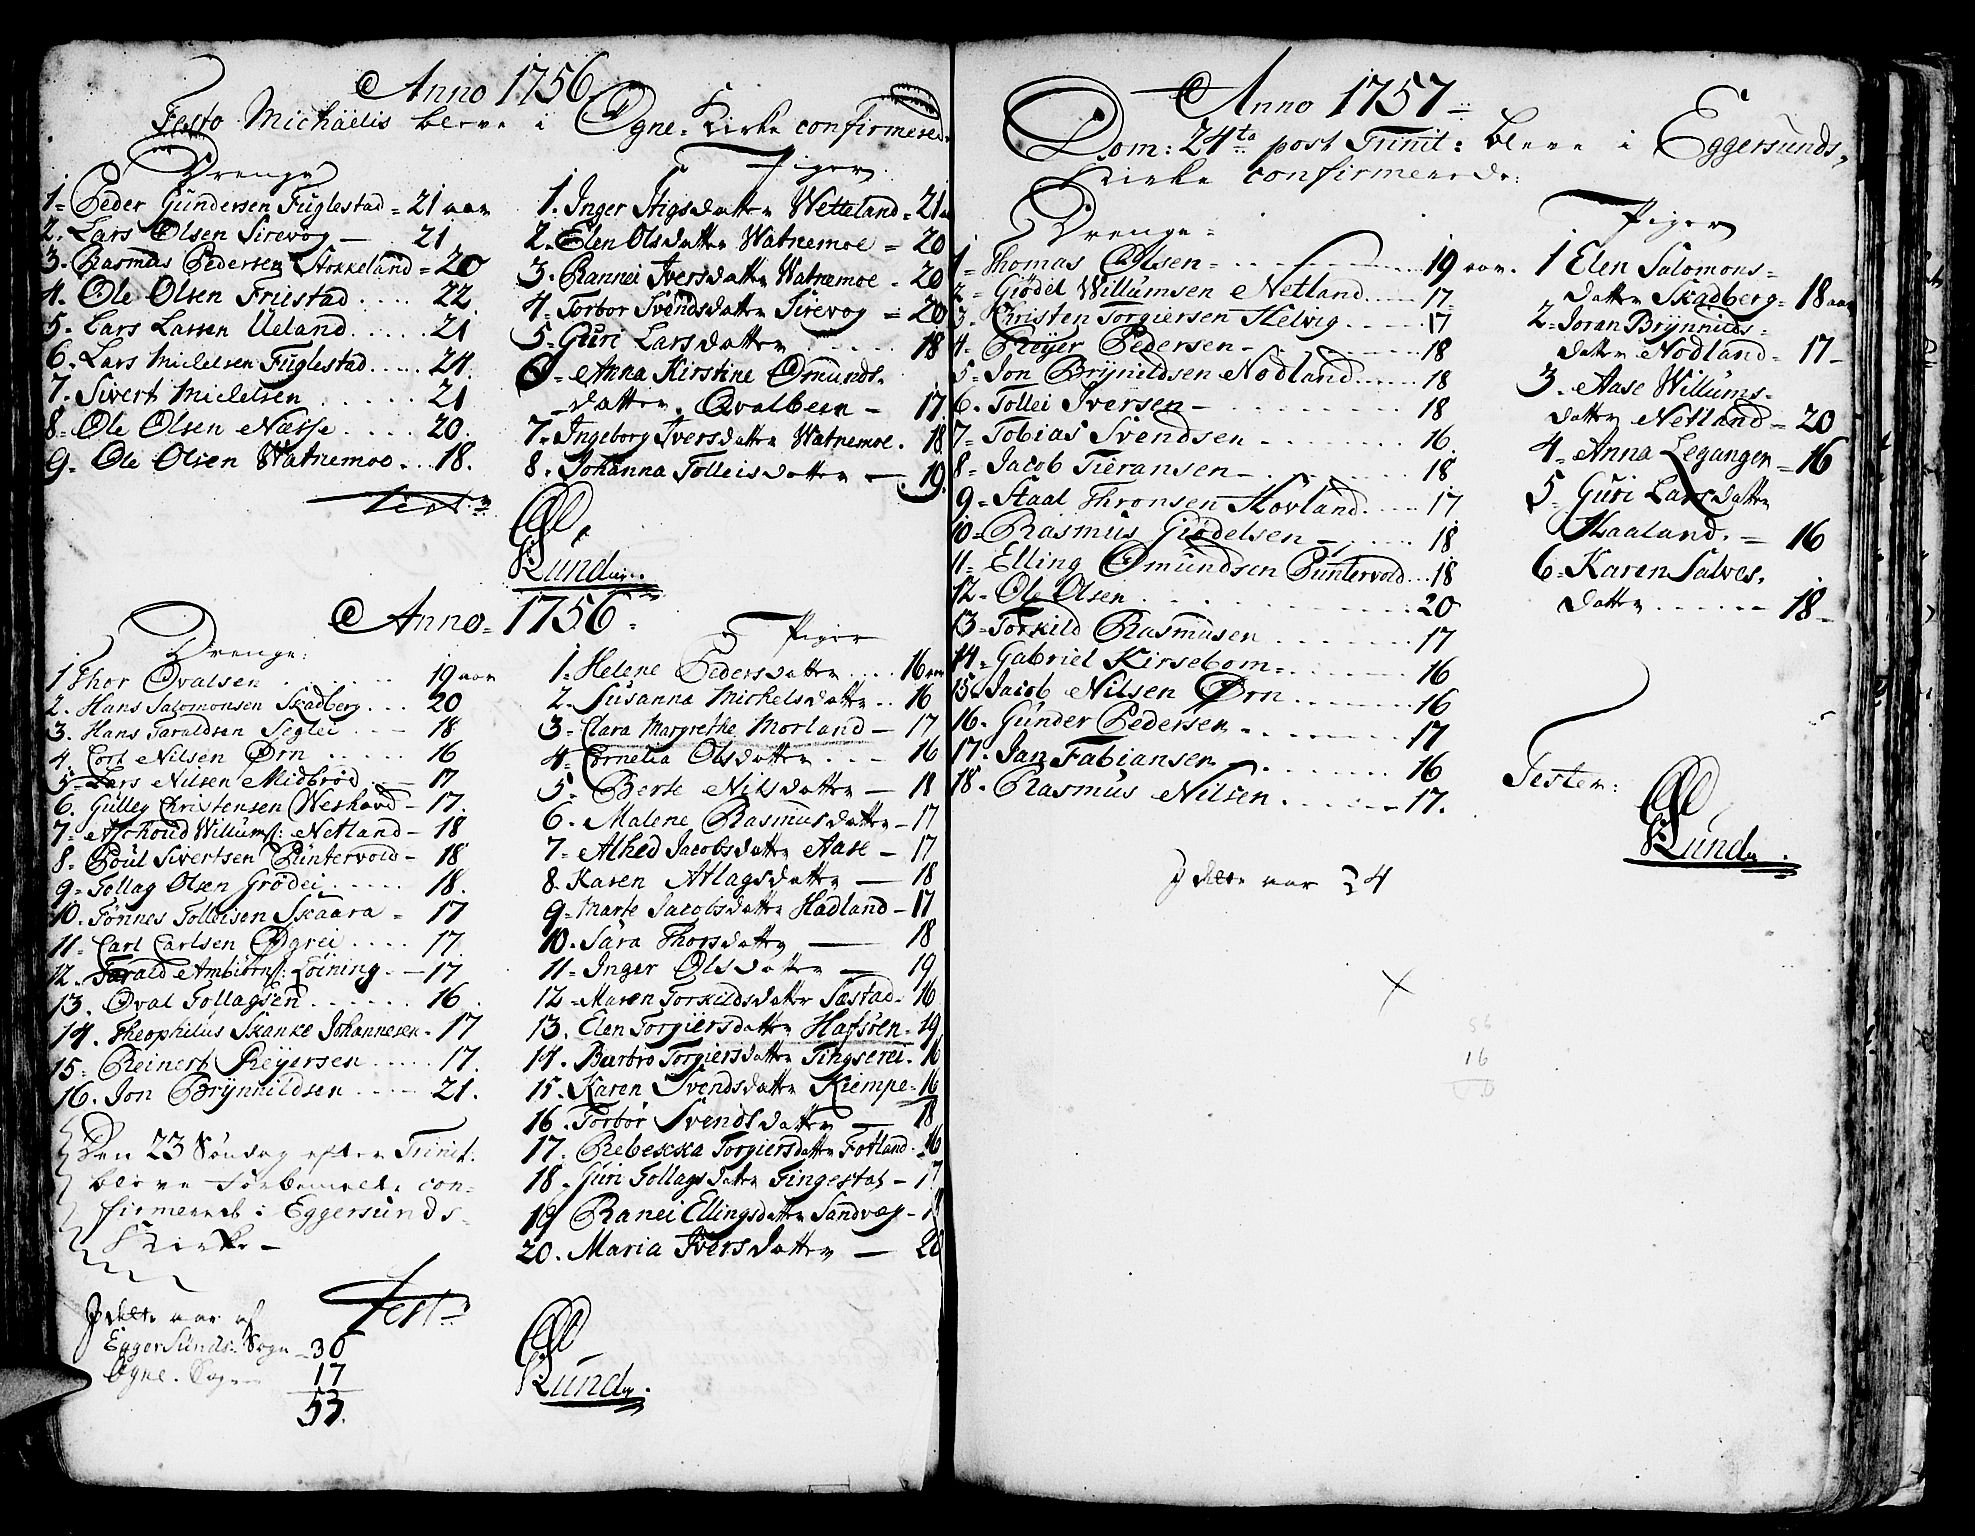 Anno 1756
Festo Michäelis bleve i Ogne- Kirke confirmerede
Drenge
1- Peder Gundersen Fuglestad - 21 aar
2. Lars Olsen Sirevog — 21
3. Rasmus Pedersen Stokkeland - 20
4. Ole Olsen Friestad .... 22
5. Lars Larsen Ueland ..... 21
6. Lars Mickelsen Fuglestad .... 24
7. Sivert Mickelsen ..... 21
8. Ole Olsen Næsse .... 20.
9. Ole Olsen Watnemoe ... 18.
Test:
Piger
1. Inger Stigsdatter Wetteland - 21
2. Elen Olsdatter Watnemoe - 20
3. Rannei Iversdatter Watnemoe - 20
4. Torbor Svendsdatter Sirevog - 20
5- Guri Larsdatter ..... 18
6- Anna Kirstine Omunds-
datter Qvalbeen - 17
7- Ingeborg Iversdatter Watnemoe. 18
8. Johanna Tolleisdatter — 19.
Lund
Anno- 1756-
Drenge:
1 Thor Ovalsen ...... 19 aar
2. Hans Salomonsen Skadberg ... 20
3. Hans Taraldsen Seglei ... 18
4. Cort Nilsen Ørn ..... 16
5- Lars Nilsen Midbrød ... 17
6. Gulley Christensen Weshovd - 17.
7- Aschoud Willums: Netland - 18
8. Poul Sivertsen Puntervold - 18
9- Tollag Olsen Grødei ..... 18.
10. Tönnes Tolleisen Skaara - 17
11- Carl Carlsen Øgrei .... 17.
12. Tarald Ambiörns: Löining. - 17
13. Oval Tollagsen ...... 16.
14. Theophilus Skanke Johannesen - 17
15- Reinert Reyersen ..... 17.
16. Jon Brynnildsen .... 21.
Den 23 Söndag efter Trinit.
bleve forbemelte con-
firmeret i Eggersunds-
Kirke-
Test:
I dette aar af
Eggersunds: Sogn - 30
Ogne. Sogn 17
53.
Piger
1- Helene Pedersdatter .... 16 aar
2- Susanna Mickelsdatter .. 16
3- Clara Margrethe Morland - 17
4- Cornelia Olsdatter ... 16
5. Berte Nilsdatter — 18
6. Malene Rasmusdatter - 17
7- Alhed Jacobsdatter Aase - 17
8. Karen Atlagsdatter — 18
9- Marte Jacobsdatter Hadland - 17
10. Sara Thorsdatter — 18
11- Inger Olsdatter — 19
12- Maren Torkildsdatter Sæstad - 16
13. Elen Torgiersdatter Hafsöen - 19
14. Barbro Torgiersdatter Tingserei. 16
15. Karen Svendsdatter Kiempe - 16
16. Torbor Svendsdatter — 18
17. Rebekka Torgiersdatter Fotland. 16
18. Guri Tollagsdatter Tingestad - 17
19 Ranei Ellingsdatter Sandvog - 18
20. Maria Iversdatter — 20
Lund
Anno 1757-
Dom: 24ta post Trinit: bleve i Eggersunds-
Kirke confirmerede:
Drenge-
1- Thomas Olsen - ...... 19 aar.
2- Giødel Willumsen Netland .... 17
3. Christen Torgiersen Helvig .... 17
4- Reyer Pedersen - ...... 18
5- Jon Brynildsen Nodland ..... 18
6- Tollei Iversen - ....... 18
7- Tobias Svendsen ....... 16
8- Jacob Tieransen - ...... 18
9- Staal Thronsen Hovland .... 17
10- Rasmus Giødelsen - .... 18
11- Elling Omundsen Puntervold ... 18
12- Ole Olsen ........ 20
13- Torkild Rasmusen ...... 17
14- Gabriel Kirsebom ...... 16
15- Jacob Nilsen Ørn ...... 16
16. Gunder Pedersen ...... 17
17. Jan Fabiansen ....... 16
18. Rasmus Nilsen ...... 17.
Piger
1 Elen Salomons-
datter Skadberg - 18 aar
2- Joran Brynnilds-
datter Nodland - 17-
3. Aase Willums-
datter Netland - 20
4- Anna Legangen - 16
5- Guri Larsdatter
Haaland. - 16
6- Karen Salves-
datter ...... 18-
Tester:
Lund
I dette aar 24